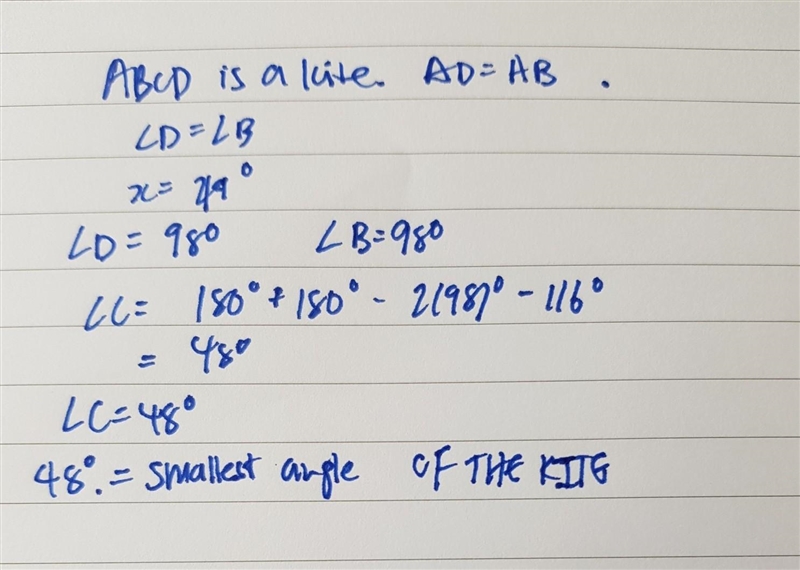 ABCD is a kite. AD=AB .
∠D=∠B
x= 49°
∠D= 98° ∠B=98°
∠C= 180°+180° - 2(98)° - 116°
= 48°
∠C=48°
48°. = smallest angle OF THE KITE